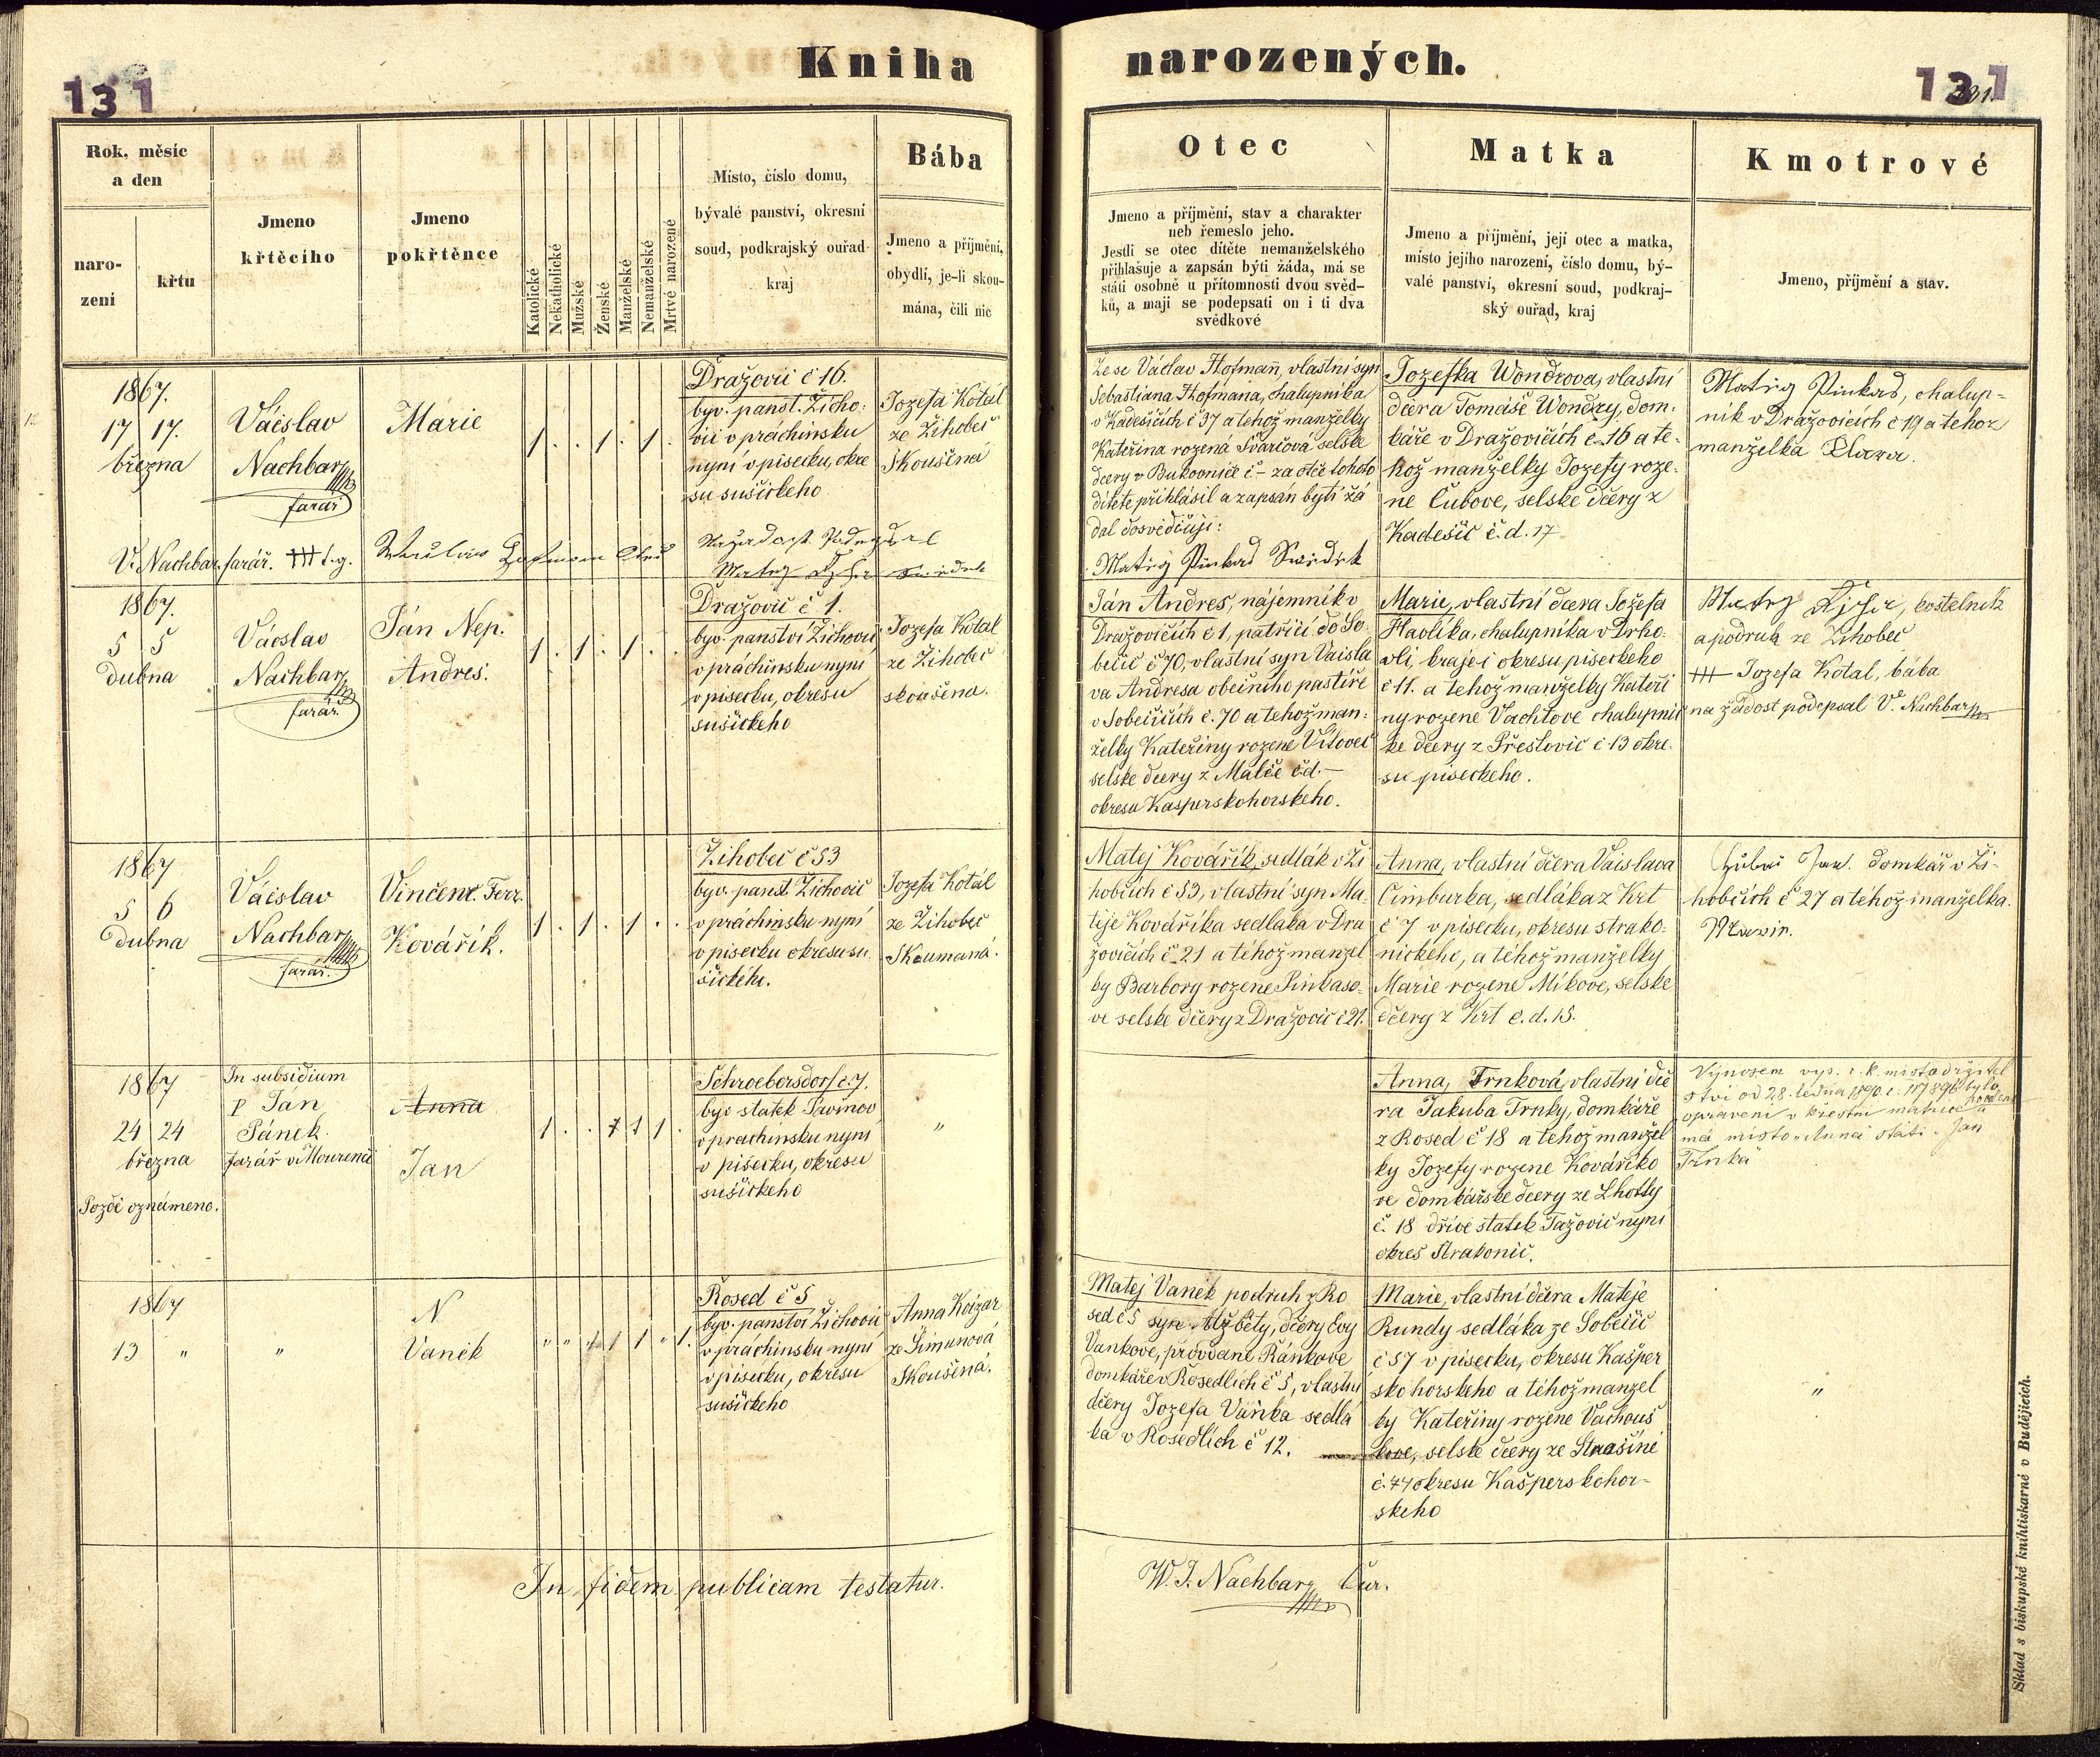 Kniha narozených.
131
131
331.
Rok, měsíc
a den
naro-
zení
křtu
Jmeno
křtěcího
Jmeno
pokřtěnce
Katolické
Nekatholické
Mužské
Ženské
Manželské
Nemanželské
Mrtvě narozené
Místo, číslo domu,
bývalé panství, okresní
soud, podkrajský ouřad
kraj
Bába
Jmeno a příjmění,
obydlí, je-li skou-
mána, čili nic
Otec
Jmeno a příjmění, stav a charakter
neb řemeslo jeho.
Jestli se otec dítěte nemanželského
přihlašuje a zapsán býti žáda, má se
státi osobně u přítomnosti dvou svěd-
ků, a mají se podepsati on i ti dva
svědkové
Matka
Jmeno a přijmění, její otec a matka,
místo jejího narození, číslo domu, bý-
valé panství, okresní soud, podkraj-
ský ouřad, kraj
Kmotrové
Jmeno, příjmění a stav.
12
1867.
17 17.
března
Václslav
Nachbar
farář
Marie
1 . . 1 . 1 .
Dražovic č 16.
byv. panst. Žicho-
vic v práchinsku
nyní v písecku, okre
su sušického
Jozefa Kotál
ze Žihobec
Skoušená
Že se Václav Hofmann, vlastní syn
Sebastiana Hofmana, chalupníka
v Kadešicích č 37 a tehož manželky
Kateřina rozená Švarcová selské
dcery v Bukovníce č – za otce tohoto
dítěte přihlásil a zapsán býti žá
dal dosvědčují:
Matěj Pinkas Swědek
Jozefka Wondrova, vlastní
dcera Tomáše Wondry, dom-
káře v Dražovicích č. 16 a te-
hož manželky Jozefy roze-
né Čubove, selske dcery z
Kadešic č. d. 17
Matěj Pinkas, chalup=
ník v Dražovicích č 19 a tehož
manželka
V. Nachbar farář. +++ t.g.
1867.
5 5
dubna
Václslav
Nachbar
farář.
Ján Nep.
Andres.
1 . 1 . 1 . .
Dražovic č 1.
byv. panství Žichovic,
v práchinsku nyní
v písecku, okresu
sušického
Jozefa Kotal
ze Žihobec
skoušena.
Ján Andres, nájemník v
Dražovičích č 1, patřící do So-
běšic č 70, vlastní syn Vaisla
va Andresa obecního pastíře
v Soběšicích č. 70 a tehož man-
želky Kateřiny rozene Vítovec
selske dcery z Malče čd. –
okresu Kasperskohorskeho.
Marie, vlastní dcera Jozefa
Havlíka, chalupníka v Drho-
vli, kraje i okresu píseckeho
č 11. a tehož manželky Kateři
ny rozene Vachtove chalupnic
ke dcery z Přestovic č 13 okre-
su píseckeho.
kostelník
a podruh ze Žihobec
+++ Jozefa Kotal, bába
na žádost podepsal V. Nachbar
1867
5 6
dubna
Václslav
Nachbar
farář.
Vinčenc. Ferr.
Kovářík.
1 . 1 . 1 . .
Žihobec č 53
byv. panst Žichovic
v práchinsku nyní
v písecku okresu su-
šického.
Jozefa Kotál
ze Žihobec
Skoumaná.
Matěj Kovářík, sedlák v Ži
hobcích č 53, vlastní syn Ma-
těje Kováříka sedláka v Dra
žovicích č 21 a téhož manžel
ky Barbory rozene Pinkaso-
ve selske dcery z Dražovic č 21.
Anna, vlastní dcera Vaislava
Cimburka, sedláka z Krt
č 7 v písecku, okresu strako-
nického, a téhož manželky
Marie rozene Míkove, selske
dcery z Krt č. d. 15.
Jan. domkář v Ži-
hobcích č 27 a téhož manželka.
1867
24 24
března
Pozdě oznámeno.
In subsidium
P Ján
Pánek
farář v Mourenci
Anna
Jan
1 . . 1 1 1 .
Schroebersdorf č. 7.
byv statek Pavinov
v prachinsku nyní
v písecku, okresu
sušického
"
Anna, Trnková, vlastní dce
ra Jakuba Trnky, domkáře
z Rosed č 18 a tehož manžel
ky Jozefy rozene Kováříko
ve domkářske dcery ze Lhotty
č. 18 dříve statek Tažovic nyní
okres Strakonic.
Výnosem vys. c. k. místodržitel
ství od 28. ledna 1890. č. 117896 bylo
opravení v křestní matrice
má místo „Anna" státi „Jan
Trnka"
1867
13 "
"
N
Vaněk
" " 1 1 1 " 1.
Rosed č 5
byv. panství Žichovic
v práchinsku nyní
v písecku, okresu
sušického
Anna Koizar
ze Šimanová
Skoušená.
Matěj Vaněk podruh z Ro
sed č 5 syn Alžběty, dcery Evy
Vankove, provdane Ránkove
domkáře v Rosedlích č 5, vlastní
dcery Jozefa Váňka sedlá
ka v Rosedlích č 12.
Marie, vlastní dcera Matěje
Rundy sedláka ze Soběšic
č 57 v písecku, okresu Kašper
skohorskeho a téhož manžel
ky Kateřiny rozene Vachouš
kove, selske dcery ze Strašíně
č. 74 okresu Kašperskohor-
skeho
"
In fidem publicam testatur.
W. J. Nachbar, Cur.
Sklad s biskupské knihtiskarně v Budějicích.